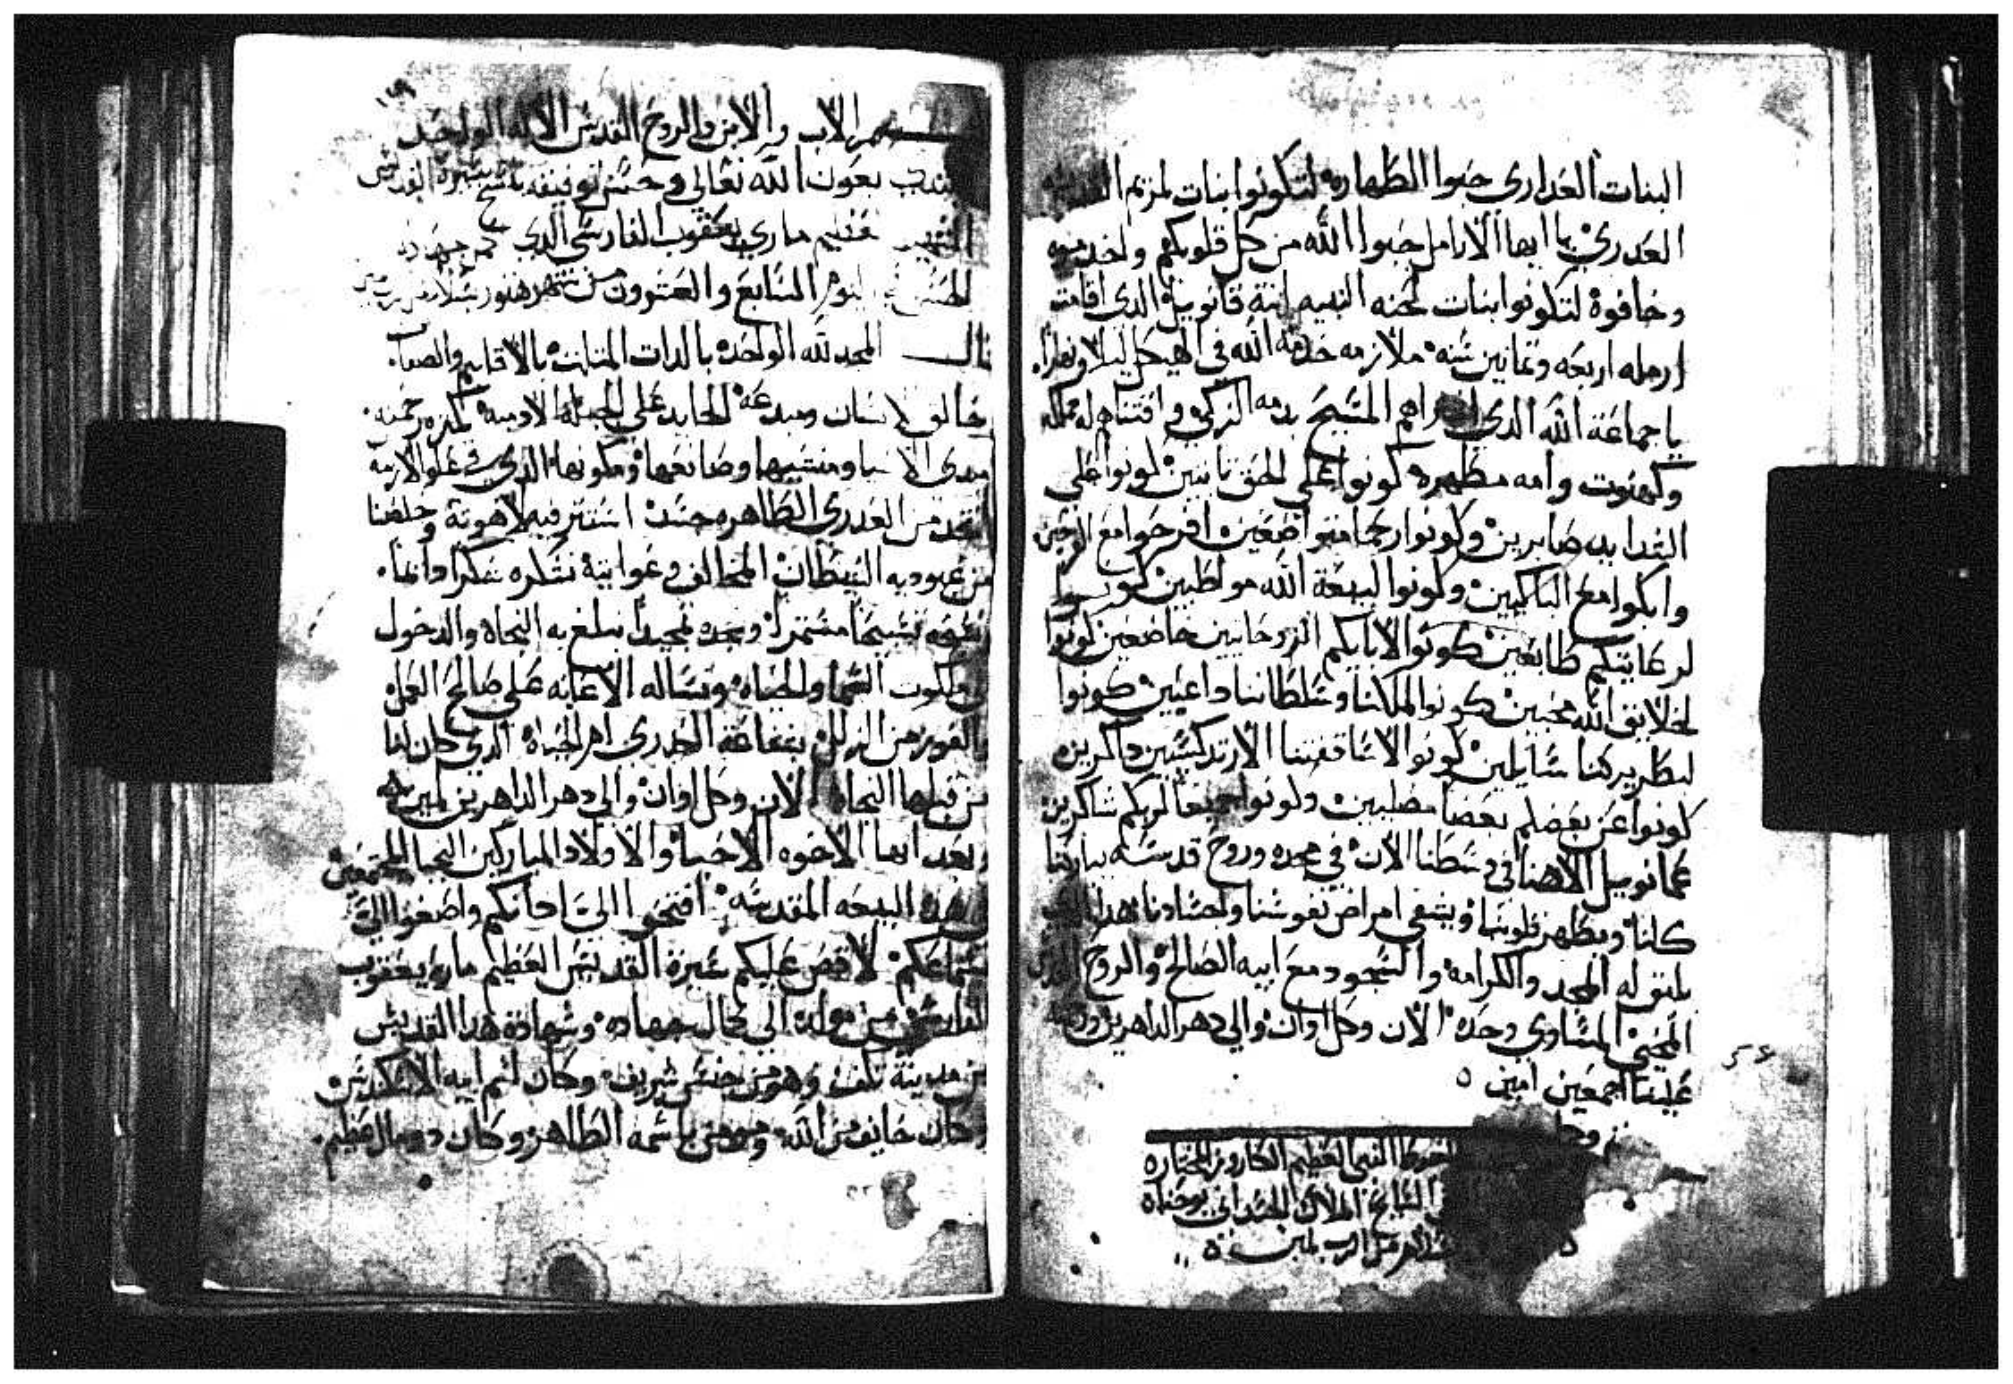 البنات العدارى حبوا الطهاره لتكونوا بنات لمريم
العدرى يا ايها الارامل حبوا الله من كل قلوبكم واخدموه
وخافوه لتكونوا بنات لحنه النبيه ابنة فانوييل الدى اقامت
ارمله اربعه وتمانين سنه ملازمه خدمة الله فى الهيكل ليلا ونهارا
يا جماعة الله الدى اشتراهم المسيح بدمه الزكى واقتناهم له مملكه
وكهنوت وامه مطهره كونوا على الحق تابتين كونوا على
الشدايد صابرين وكونوا رحما متواضعين افرحوا مع الفرحين
وابكوا مع الباكيين وكونوا لبيعة الله مواظبين كونوا
لرعايتكم طايعين كونوا لابايكم الروحانيين خاضعين كونوا
لخلايق الله محبين كونوا لملكنا وسلطاننا داعيين كونوا
لبطريركنا سايلين كونوا لاساقفتنا الارتدكسيين داكرين
كونوا عن بعضكم بعضا مصليين وكونوا جميعا لربكم شاكرين
عمانوييل الاهنا فى وسطنا الان فى مجده وروح قدسه يباركنا
كلنا ويطهر قلوبنا ويشفى امراض نفوسنا واجسادنا هدا
يليق له المجد والكرامه والسجود مع ابيه الصالح والروح القدس
المحيى المساوى وحده الان وكل اوان والى دهر الداهرين
علينا اجمعين امين
النبى العظيم الكاروز المختاره
السابع الملاك الجسدانى يوحناه
من الرب امين
الاب والابن والروح القدس الاله الواحد
نبتدى بعون الله تعالى وحسن توفيقه بنسخ سيرة القديس
الشهيد العظيم مارى يعقوب الفارسى الدى جهاده
اليوم السابع والعشرون من شهر هتور بسلام
قال المجد لله الواحد بالدات المتلت بالاقانيم والصفات
خالق الانسان ومبدعه الجايد على الجبلة الادميه بكتره رحمته
مبدى الاشيا ومنشيها وصانعها ومكونها الدى فى علو
اتخد من العدرى الطاهره جسد استتر فيه لاهوته وخلصنا
من عبوديه الشيطان المخالف وغوايته نشكره شكرا دايما
نسبحه تسبيحا مستمرا ونمجده تمجيدا نبلغ به النجاه والدخول
ملكوت السما والحياه ونساله الاعانه على صالح العمل
من الزلل بشفاعة العدرى ام الحياه الدى كان لنا
من قبلها النجاه الان وكل اوان والى دهر الداهرين امين
وبعد ايها الاخوه الاحبا والاولاد المباركين النجبا المجتمعين
فى هده البيعه المقدسه افتحوا الى ادانكم واصغوا الى
سماعكم لاقص عليكم سيرة القديس العظيم مارى يعقوب
الفارسى من مولده الى كمال جهاده وشهادة هدا القديس
من مدينة وهو من جنس شريف وكان اسم ابيه الاسكندرس
وكان خايف من الله ومومن باسمه الطاهر وكان دو مال عظيم